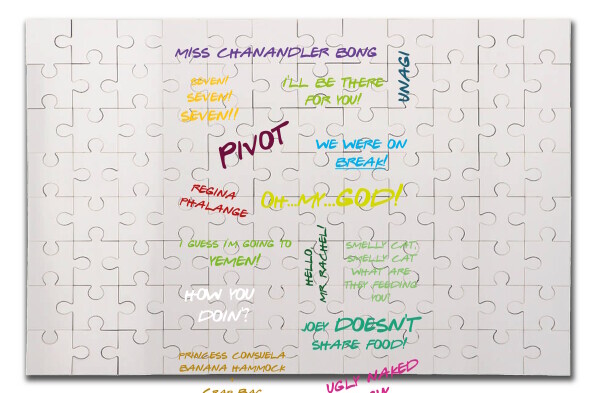 MISS CHANANDLER BONG
UNAGI
SEVEN!
SEVEN!
SEVEN!!
I'LL BE THERE
FOR YOU!
PIVOT
WE WERE ON
BREAK!
REGINA
PHALANGE
OH...MY...GOD!
I GUESS IM GOING TO
YEMEN!
HELLO,
MR RACHEL!
SMELLY CAT,
SMELLY CAT
WHAT ARE
THEY FEEDING
YOU
HOW YOU
DOIN?
JOEY DOESN'T
SHARE FOOD!
PRINCESS CONSUELA
BANANA HAMMOCK
CRAP BAG
UGLY NAKED